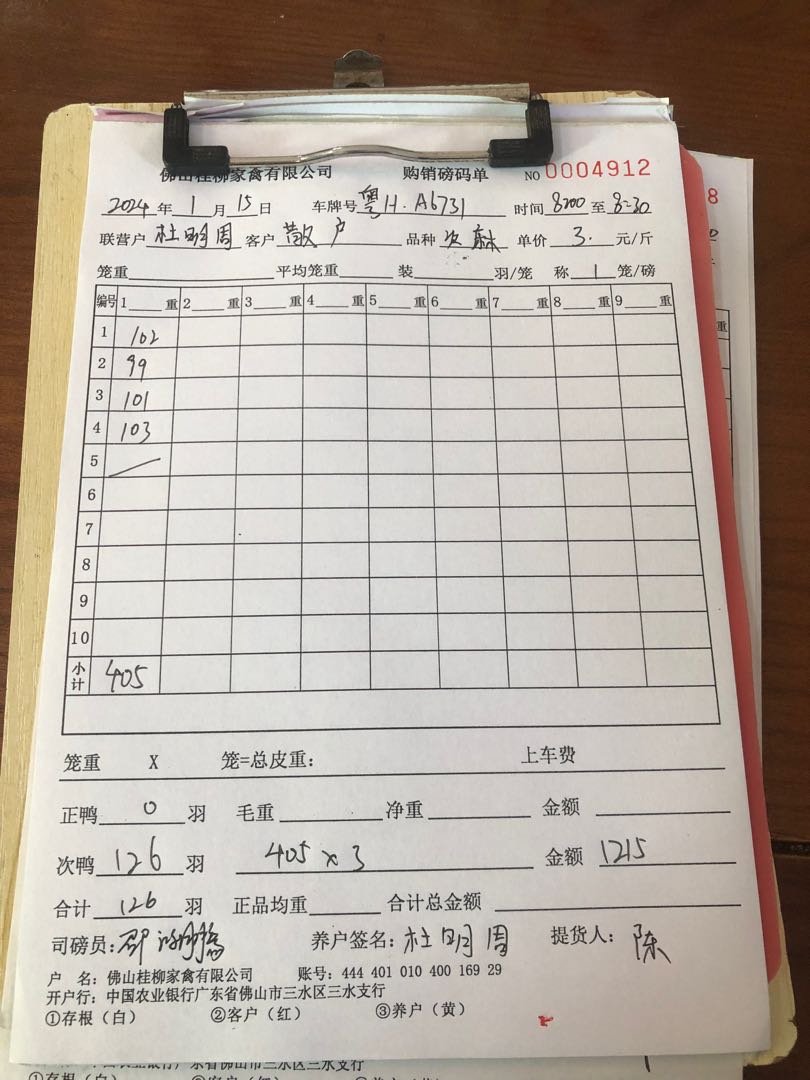 佛山桂柳家禽有限公司 购销磅码单 NO 0004912
2024年1月15日 车牌号粤H·A6731 时间8:00至8:30
联营户杜明周客户散户 品种次麻 单价3.元/斤
笼重 平均笼重 装 羽/笼 称1笼/磅
编号 1 重 2 重 3 重 4 重 5 重 6 重 7 重 8 重 9 重
1 102
2 99
3 101
4 103
5
6
7
8
9
10
小计 405
笼重 X 笼=总皮重： 上车费
正鸭 0 羽 毛重 净重 金额
次鸭 126 羽 405×3 金额 1215
合计 126 羽 正品均重 合计总金额
司磅员： 养户签名：杜明周 提货人：陈
户 名：佛山桂柳家禽有限公司 账号：444 401 010 400 169 29
开户行：中国农业银行广东省佛山市三水区三水支行
①存根（白） ②客户（红） ③养户（黄）